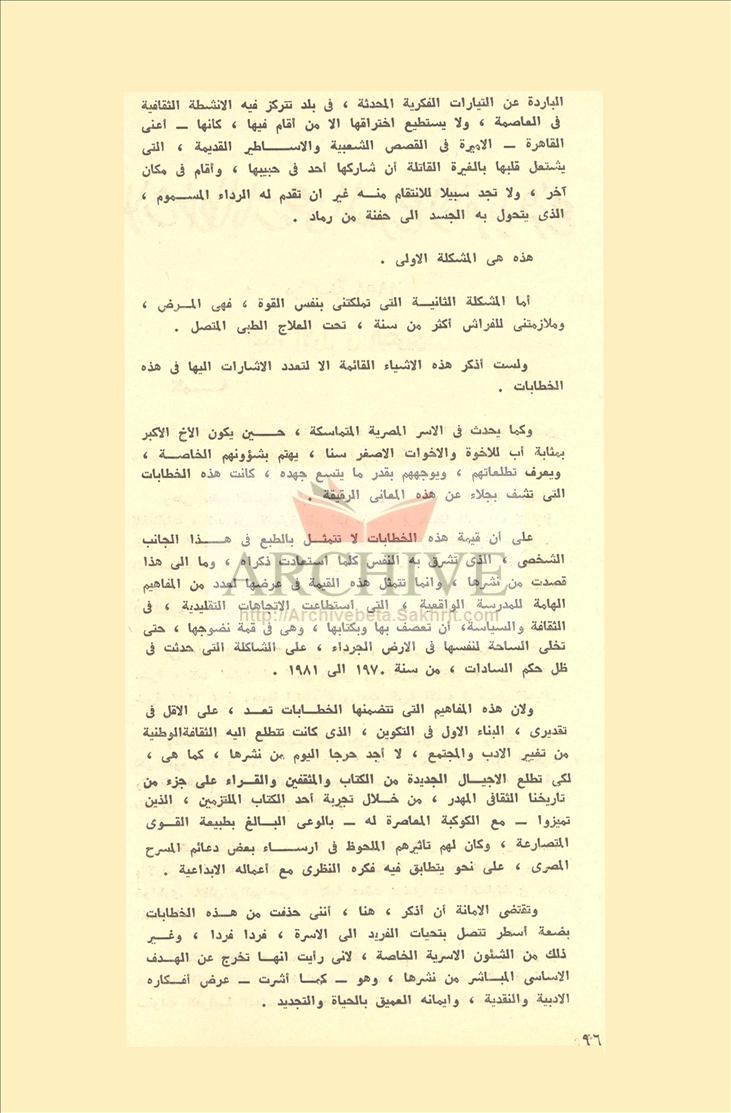 الباردة عن التيارات الفكرية المحدثة ، فى بلد تتركز فيه الانشطة الثقافية
فى العاصمة ، ولا يستطيع اختراقها الا من أقام فيها ، كانها ــ أعنى
القاهرة ــ الاميرة فى القصص الشعبية والاساطير القديمة ، التى
يشتعل قلبها بالغيرة القاتلة أن شاركها أحد فى حبيبها ، وأقام فى مكان
آخر ، ولا تجد سبيلا للانتقام منه غير ان تقدم له الرداء المسموم ،
الذى يتحول به الجسد الى حفنة من رماد .
هذه هى المشكلة الاولى .
أما المشكلة الثانية التى تملكتنى بنفس القوة ، فهى المرض ،
وملازمتنى للفراش أكثر من سنة ، تحت العلاج الطبى المتصل .
ولست أذكر هذه الاشياء القائمة الا لتعدد الاشارات اليها فى هذه
الخطابات .
وكما يحدث فى الاسر المصرية المتماسكة ، حين يكون الاخ الاكبر
بمثابة أب للاخوة والاخوات الاصغر سنا ، يهتم بشؤونهم الخاصة ،
ويعرف تطلعاتهم ، ويوجههم بقدر ما يتسع جهده ، كانت هذه الخطابات
التى تشف بجلاء عن هذه المعانى الرقيقة .
على أن قيمة هذه الخطابات لا تتمثل بالطبع فى هذا الجانب
الشخصى ، الذى تشرق به النفس كلما استعادت ذكراه ، وما الى هذا
قصدت من نشرها ، وانما تتمثل هذه القيمة فى عرضها لعدد من المفاهيم
الهامة للمدرسة الواقعية ، التى استطاعت الاتجاهات التقليدية ، فى
الثقافة والسياسة، أن تعصف بها وبكتابها ، وهى فى قمة نضوجها ، حتى
تخلى الساحة لنفسها فى الارض الجرداء ، على الشاكلة التى حدثت فى
ظل حكم السادات ، من سنة ١٩٧٠ الى ١٩٨١ .
ولان هذه المفاهيم التى تتضمنها الخطابات تعد ، على الاقل فى
تقديرى ، البناء الاول فى التكوين ، الذى كانت تتطلع اليه الثقافةالوطنية
من تغيير الادب والمجتمع ، لا أجد حرجا اليوم من نشرها ، كما هى ،
لكى تطلع الاجيال الجديدة من الكتاب والمثقفين والقراء على جزء من
تاريخنا الثقافى المهدر ، من خلال تجربة أحد الكتاب الملتزمين ، الذين
تميزوا ــ مع الكوكبة المعاصرة له ــ بالوعى البالغ بطبيعة القوى
المتصارعة ، وكان لهم تاثيرهم الملحوظ فى ارساء بعض دعائم المسرح
المصرى ، على نحو يتطابق فيه فكره النظرى مع أعماله الابداعية .
وتقتضى الامانة أن أذكر ، هنا ، أننى حذفت من هذه الخطابات
بضعة أسطر تتصل بتحيات الفريد الى الاسرة ، فردا فردا ، وغير
ذلك من الشئون الاسرية الخاصة ، لانى رأيت انها تخرج عن الهدف
الاساسى المباشر من نشرها ، وهو ــ كما أشرت ــ عرض أفكاره
الادبية والنقدية ، وايمانه العميق بالحياة والتجديد .
٩٦
ARCHIVE
http://Archivebeta.Sakhrit.com